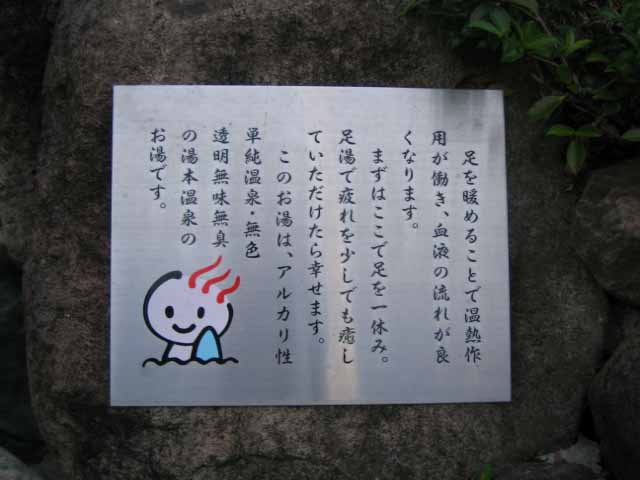 足を暖めることで温熱作
用が働き、血液の流れが良
くなります。
まずはここで足を一休み。
足湯で疲れを少しでも癒し
ていただけたら幸せます。
このお湯は、アルカリ性
単純温泉・無色
透明無味無臭
の湯本温泉の
お湯です。